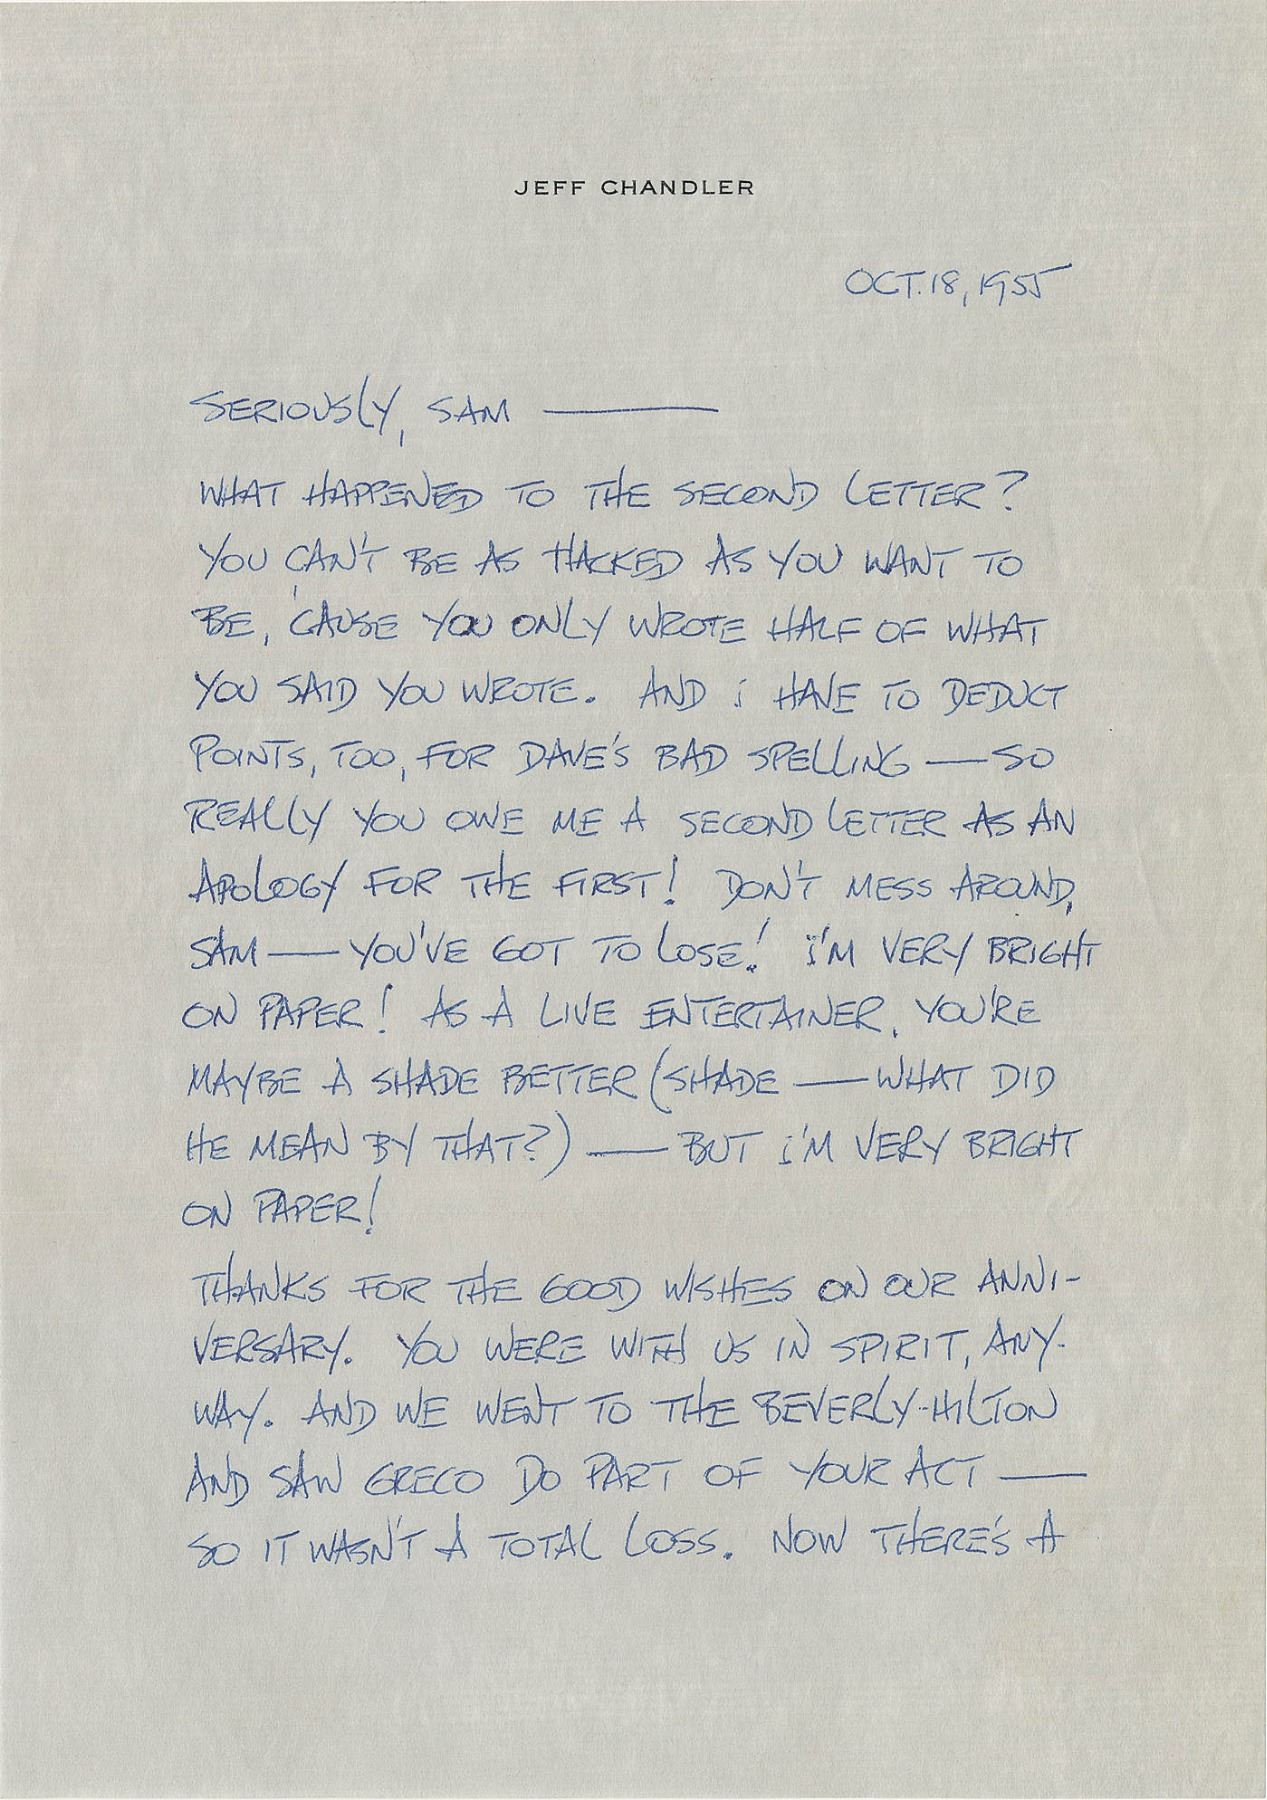 JEFF CHANDLER
OCT. 18, 1955
SERIOUSLY, SAM ———
WHAT HAPPENED TO THE SECOND LETTER?
YOU CAN'T BE AS HACKED AS YOU WANT TO
BE, 'CAUSE YOU ONLY WROTE HALF OF WHAT
YOU SAID YOU WROTE. AND i HAVE TO DEDUCT
POINTS, TOO, FOR DAVE'S BAD SPELLING — SO
REALLY YOU OWE ME A SECOND LETTER AS AN
APOLOGY FOR THE FIRST! DON'T MESS AROUND,
SAM — YOU'VE GOT TO LOSE! i'M VERY BRIGHT
ON PAPER! AS A LIVE ENTERTAINER, YOU'RE
MAYBE A SHADE BETTER (SHADE — WHAT DID
HE MEAN BY THAT?) — BUT i'M VERY BRIGHT
ON PAPER!
THANKS FOR THE GOOD WISHES ON OUR ANNI-
VERSARY. YOU WERE WITH US IN SPIRIT, ANY-
WAY. AND WE WENT TO THE BEVERLY-HILTON
AND SAW GRECO DO PART OF YOUR ACT —
SO IT WASN'T A TOTAL LOSS. NOW THERE'S A